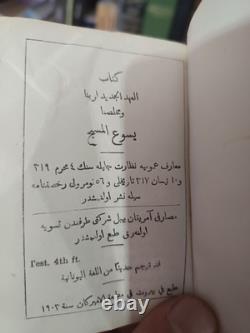 كتاب
العهد الجديد لربنا
ومخلصنا
يسوع المسيح
معارف عموميه نظارت جليله سنك ٤ محرم ٣١٩
و ١٠ نيسان ٣١٧ تاريخلى و ٥٦ نومرولى رخصتنامه
سيله نشر اولنمشدر
مصارفى آمريقان بيبل شركتى طرفندن تسويه
اوله رق طبع اولنمشدر
Test. 4th ft.
قد ترجم حديثا من اللغة اليونانية
طبع في بيروت في الاميركان سنة ١٩٠٢
© ebay